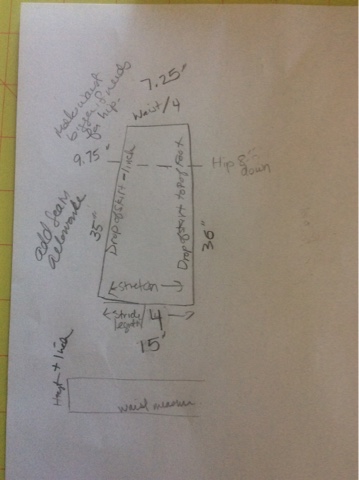 7.25"
Waist/4
Make waist
bigger if needs
for hip.
9.75"
Hip 8"
down
Drop of skirt - 1 inch
Drop of skirt to top of foot
35"
36"
add seam
allowance
stretch
Stride
length
4
15"
+ 1 inch
waist measure